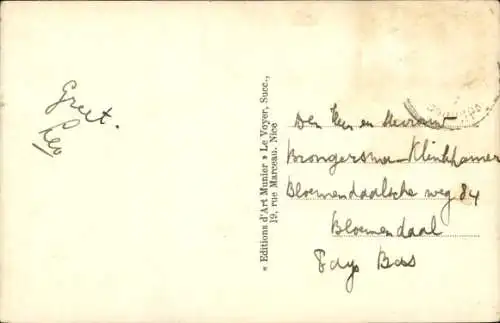 Greet.
Leo
« Editions d'Art Munier » Le Voyer, Succ.,
19, rue Marceau. Nice
Den Heer en Mevrouw
Brongersma-Klinkhamer
Bloemendaalsche weg 84
Bloemendaal
Pays Bas